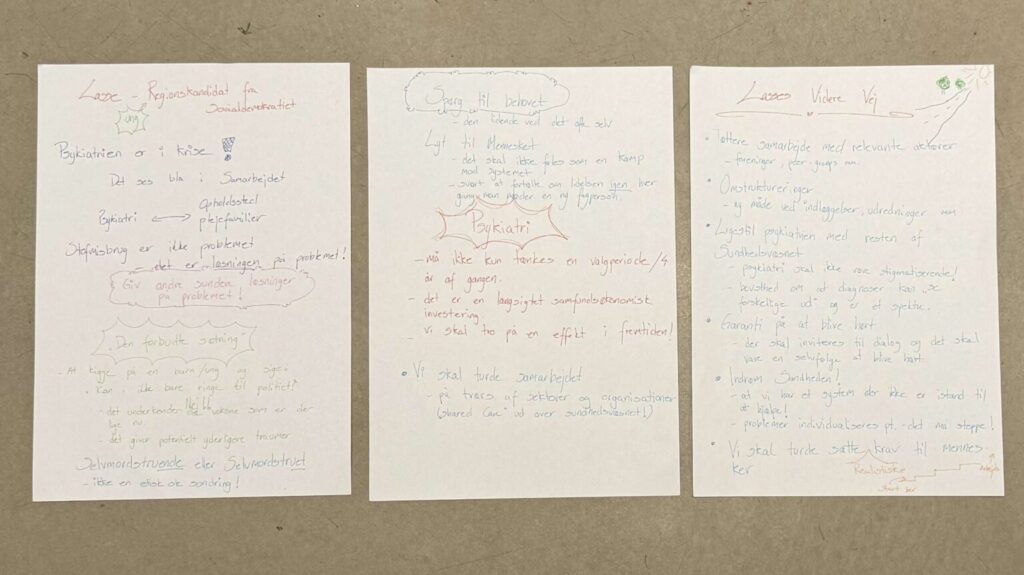 Lasse - Regionskandidat fra
Socialdemokratiet
ung
Psykiatrien er i krise !
Det ses bla i Samarbejdet
Psykiatri ↔ Opholdssted
plejefamilier
Stofmisbrug er ikke problemet
det er løsningen på problemet!
Giv andre sundere løsninger
på problemet!
"Den forbudte sætning"
- At kigge på en barn/ung og sige:
"Kan i ikke bare ringe til politiet!"
Nej!!
- det underkender de voksne som er der
lige nu
- det giver potentielt yderligere traumer
Selvmordstruende eller Selvmordstruet
- ikke en etisk ok sondring!
Spørg til behovet
- den lidende ved det ofte selv
Lyt til Mennesket
- det skal ikke føles som en kamp
mod systemet
- svært at fortælle om lidelsen igen hver
gang man møder en ny fagperson.
Psykiatri
- må ikke kun tænkes en valgperiode/4
år af gangen.
- det er en langsigtet samfundsøkonomisk
investering.
- vi skal tro på en effekt i fremtiden!
• Vi skal turde samarbejdet
- på tværs af sektorer og organisationer
(shared Care ud over sundhedsvæsnet!)
Lasses Videre Vej
• Tættere samarbejde med relevante aktører
- foreninger, peer-groups mm.
• Omstruktureringer
- ny måde ved indlæggelser, udredninger mm
• Ligestil psykiatrien med resten af
Sundhedsvæsnet
- psykiatri skal ikke være stigmatiserende!
- bevisthed om at diagnoser kan "se
forskellige ud" og er et spektre.
• Garanti på at blive hørt
- der skal inviteres til dialog og det skal
være en selvfølge at blive hørt
• Indrøm Sandheden!
- at vi har et system der ikke er istand til
at hjælpe!
- problemer individualiseres pt. - det må stoppe!
• Vi skal turde sætte krav til mennes-
ker
Realistiske
Start her
Arbejde